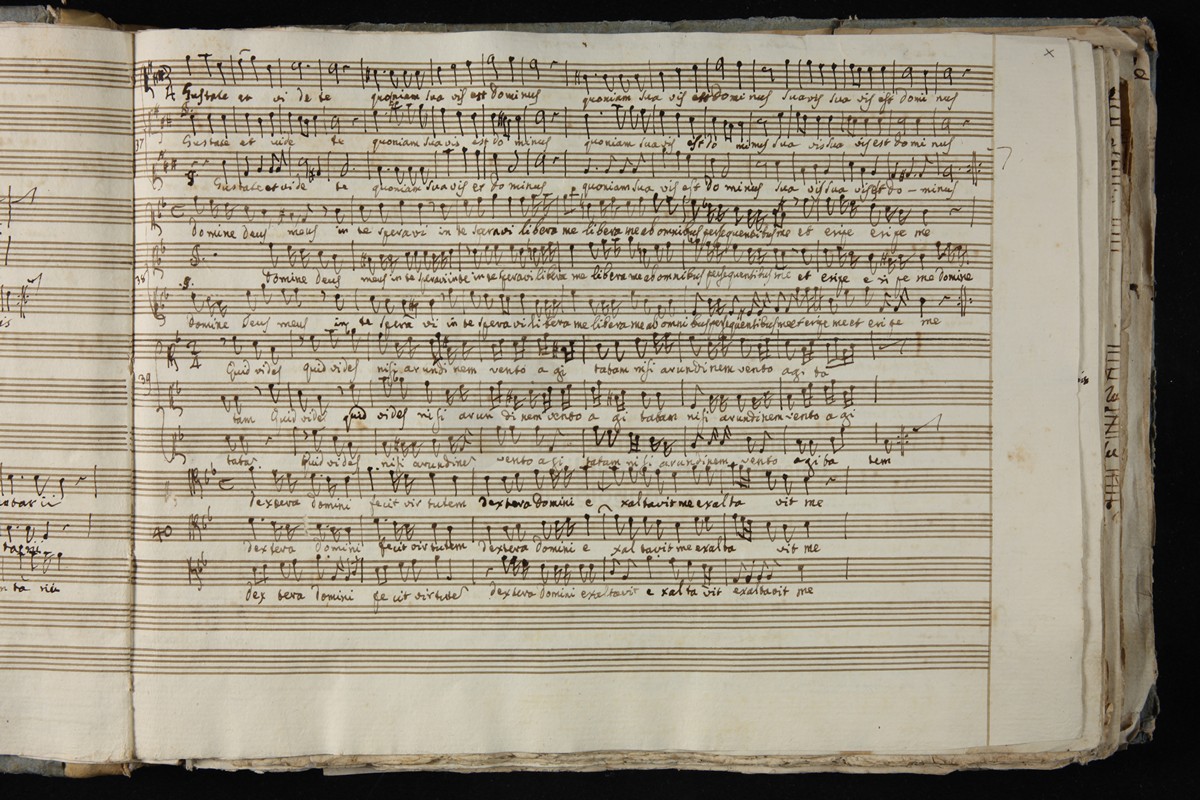 Gustate et vi de te quoniam sua vis est dominus quoniam sua vis est domi nus suavis sua vis est domi nus
37
Gustate et vide te quoniam suavis est do minus quoniam suavis est do minus sua vis sua vis est do mi nus
Gustate et vide te quoniam sua vis et do minus quoniam sua vis est do minus sua vis sua vis est do - minus
Domine Deus meus in te speravi in te libera me libera me ab omnibus persequentibus me et eripe eripe me
38
Domine Deus meus in te in te speravi libera me libera me ab omnibus persequentibus me et eripe e ri pe me Domine
Domine Deus meus in te spera vi in te speravi libera me libera me ab omni bus persequentibus me et eripe me et eri pe me
Quid vides quid vides nisi arundi nem vento a gi tatam nisi arundinem vento agi ta
39
tam Quid vides quid vides ni si arun di nem vento a gi tatam ni si arundinem vento a gi
tata Quid vides ni si arundine vento a gi tatam ni si arundinem vento agi ta tem
dextera domini fecit vir tutem dextera domini e xaltavit me exalta vit me
40
dextera domini fecit vir tutem dextera domini e xal tavit me exalta vit me
dex tera domini fe cit virtute dextera domini exaltavit e xalta vit exaltavit me